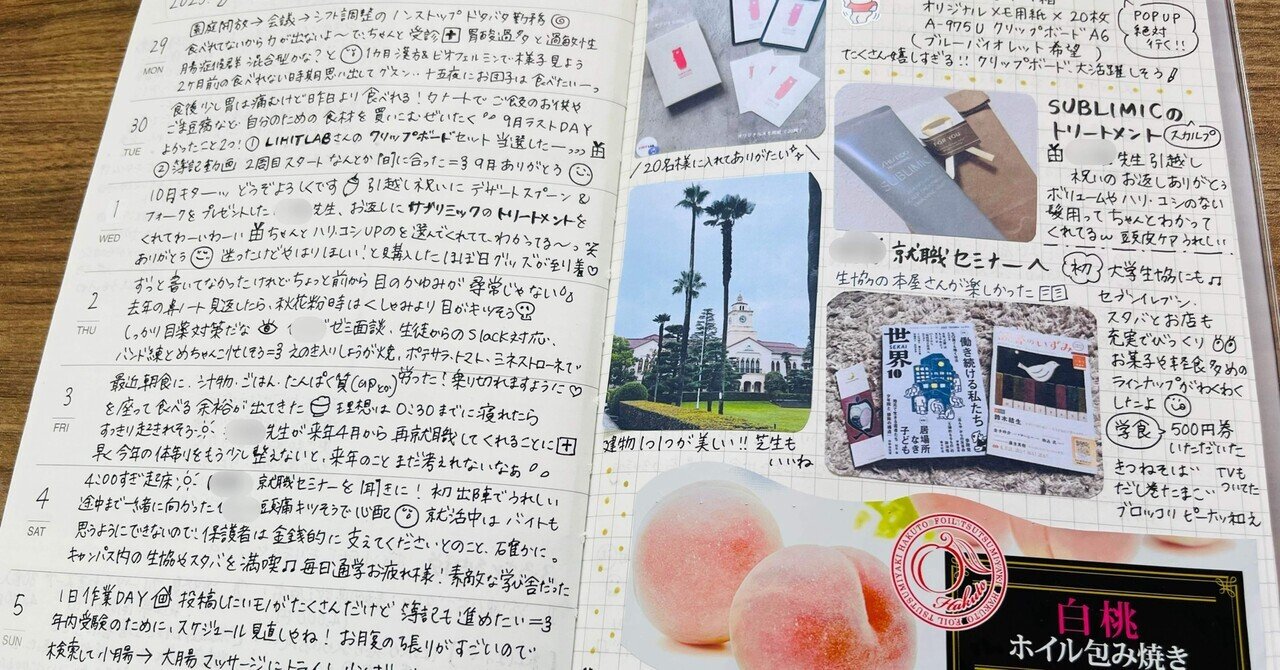 29
MON
園庭開放→会議→シフト調整のノンストップドタバタ勤務
食べれてないから力が出ないよ〜でちゃんと受診 胃酸過多と過敏性
腸症候群混合型かな?と 1カ月漢方&ビオフェルミンで様子見よう
2ヶ月前の食べれない日時期思い出してグスン… 十五夜にお団子は食べたいーっ
30
TUE
食後少し胃は痛むけど昨日より食べれる!タナートで ご飯のお供や
ごま豆腐など、自分のための食材を買いこむぜいたく 9月ラストDAY
よかったこと2つ! ① LIHITLAB.さんのクリップボードセット当選したーっっっ
② 簿記動画 2周目スタートなんとか間に合った=3 9月ありがとう
1
WED
10月キターッ どうぞよろしくです 引越し祝いに デザートスプーン&
フォークをプレゼントした 先生、お返しに サブリミックのトリートメントを
くれてわーいわーい ちゃんとハリ・コシUPのを選んでくれてて、わかってる〜っ 笑
ありがとう 迷ったけどやはりほしい!と購入したほぼ日グッズが到着♡
2
THU
ずっと書いてなかったけれどちょっと前から目のかゆみが尋常じゃない
去年の鼻ノート見返したら、秋花粉時はくしゃみより目がキツそう
しっかり目薬対策だな ゼミ面談、生徒からのSlack対応、
バンド練とめちゃこ忙しそう=3 えのき入りしょうが焼、ポテサラ、トマト、ミネストローネで
労った!乗り切れますように♡
3
FRI
最近朝食に、汁物、ごはん、たんぱく質
を座って食べる余裕が出てきた 理想は 0:30までに疲れたら
すっきり起きれそう 先生が来年4月から再就職してくれることに
早く今年の体制をもう少し整えないと、来年のことまだ考えれないなあ
4
SAT
4:00すぎ起床 就職セミナーを聞きに!初出陣でうれしい
途中まで一緒に向かった 頭痛キツそうで心配 就活中はバイトも
思うようにできないので、保護者は金銭的に支えてくださいとのこと、確かに。
キャンパス内の生協やスタバを満喫♫ 毎日通学お疲れ様!素敵な学び舎だった
5
SUN
1日作業DAY 投稿したいモノがたくさんだけど 簿記も進めたい=3
年内受験のために、スケジュール見直しやね!お腹の張りがすごいので
検索して小腸→大腸マッサージにトライ
オリジナルメモ用紙×20枚
A-975U クリップボードA6
(ブルーバイオレット希望)
たくさん嬉しすぎる!! クリップボード、大活躍しそう!
POPUP
絶対
行く!!
オリジナルメモ用紙(20枚)
20名様に入れてありがたい
SUBLIMICの
トリートメント
スカルプ
先生引越し
祝いのお返しありがとう
ボリュームやハリ・コシのない
髪用ってちゃんとわかって
くれてるw 頭皮ケアうれしい
SHISEIDO
SUBLIMIC
FOR YOU
就職セミナーへ
初
大学生協にも♫
生協の本屋さんが楽しかった
セブンイレブン、
スタバとお店も
充実でびっくり
お菓子や軽食多めの
ラインナップがわくわく
したよ
学食
500円券
いただいた
きつねそば
だし巻たまご
ブロッコリピーナッツ和え
TVも
ついてた
世界
SEKAI
10
働き続ける私たち
居場所なき子ども
のいずみ
鈴木結生
建物1つ1つが美しい!!芝生も
いいね
HAKUTO FOIL TSUTSUMIYAKI
Hakuto
白桃
ホイル包み焼き